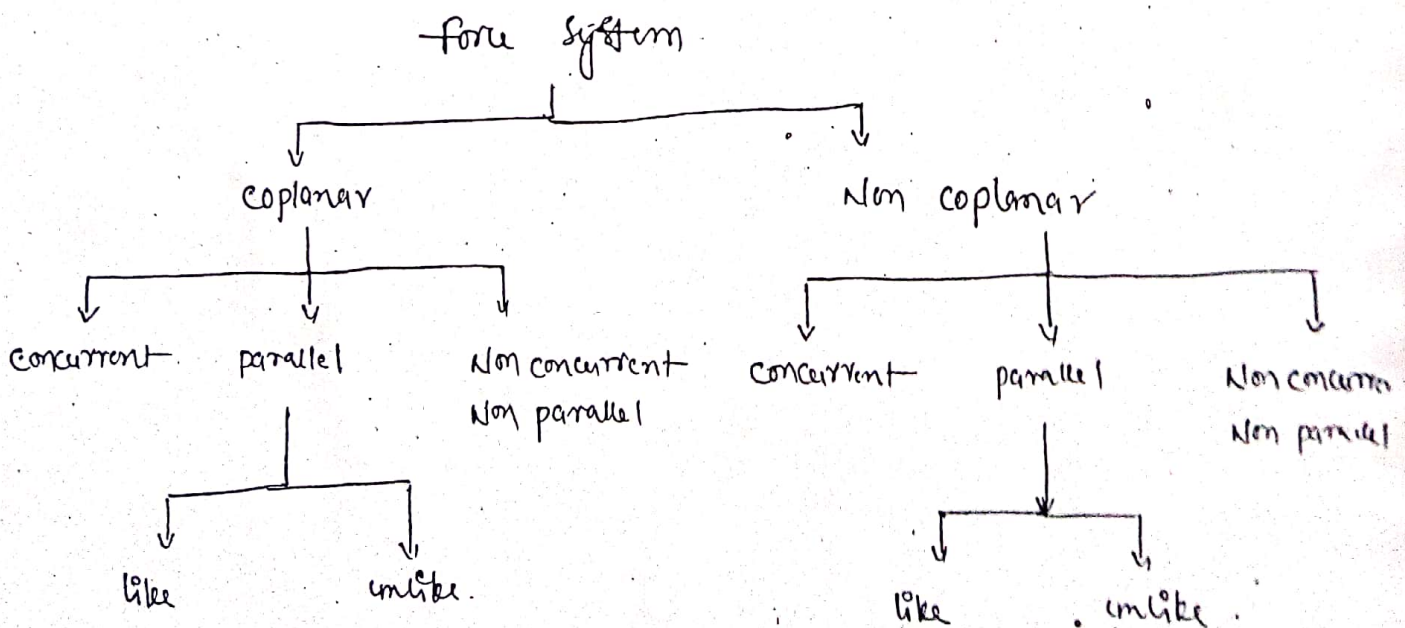 force system
coplanar Non coplanar
concurrent parallel Non concurrent concurrent parallel Non concurren
Non parallel Non parallel
like unlike. like unlike.